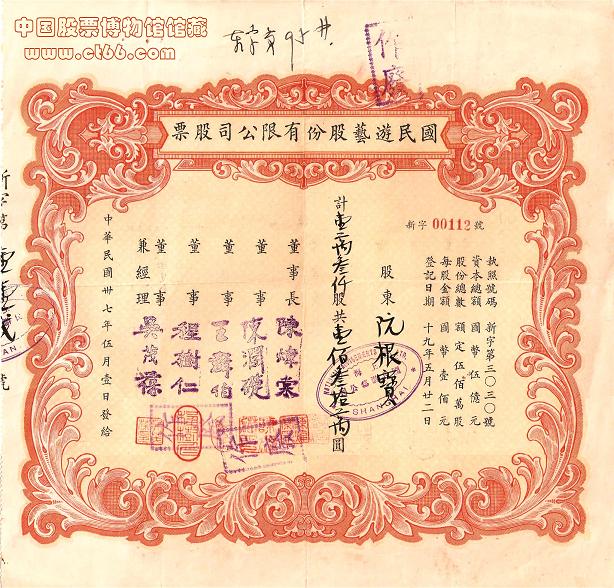 中国股票博物馆馆藏
www.ct66.com
作廢
國民遊藝股份有限公司股票
新字 00112 號
執照號碼 新字第三〇三〇號
資本總額 國幣伍億元
股份總數 額定伍佰萬股
每股金額 國幣壹佰元
登記日期 十九年五月廿二日
股東 阮根寶
計壹萬叁仟股共壹佰叁拾萬圓
SHANGHAI
董事長
董事 陳潤琥
董事
董事 程樹仁
董事兼經理 吳茂蓀
中華民國卅七年伍月壹日發給
作廢